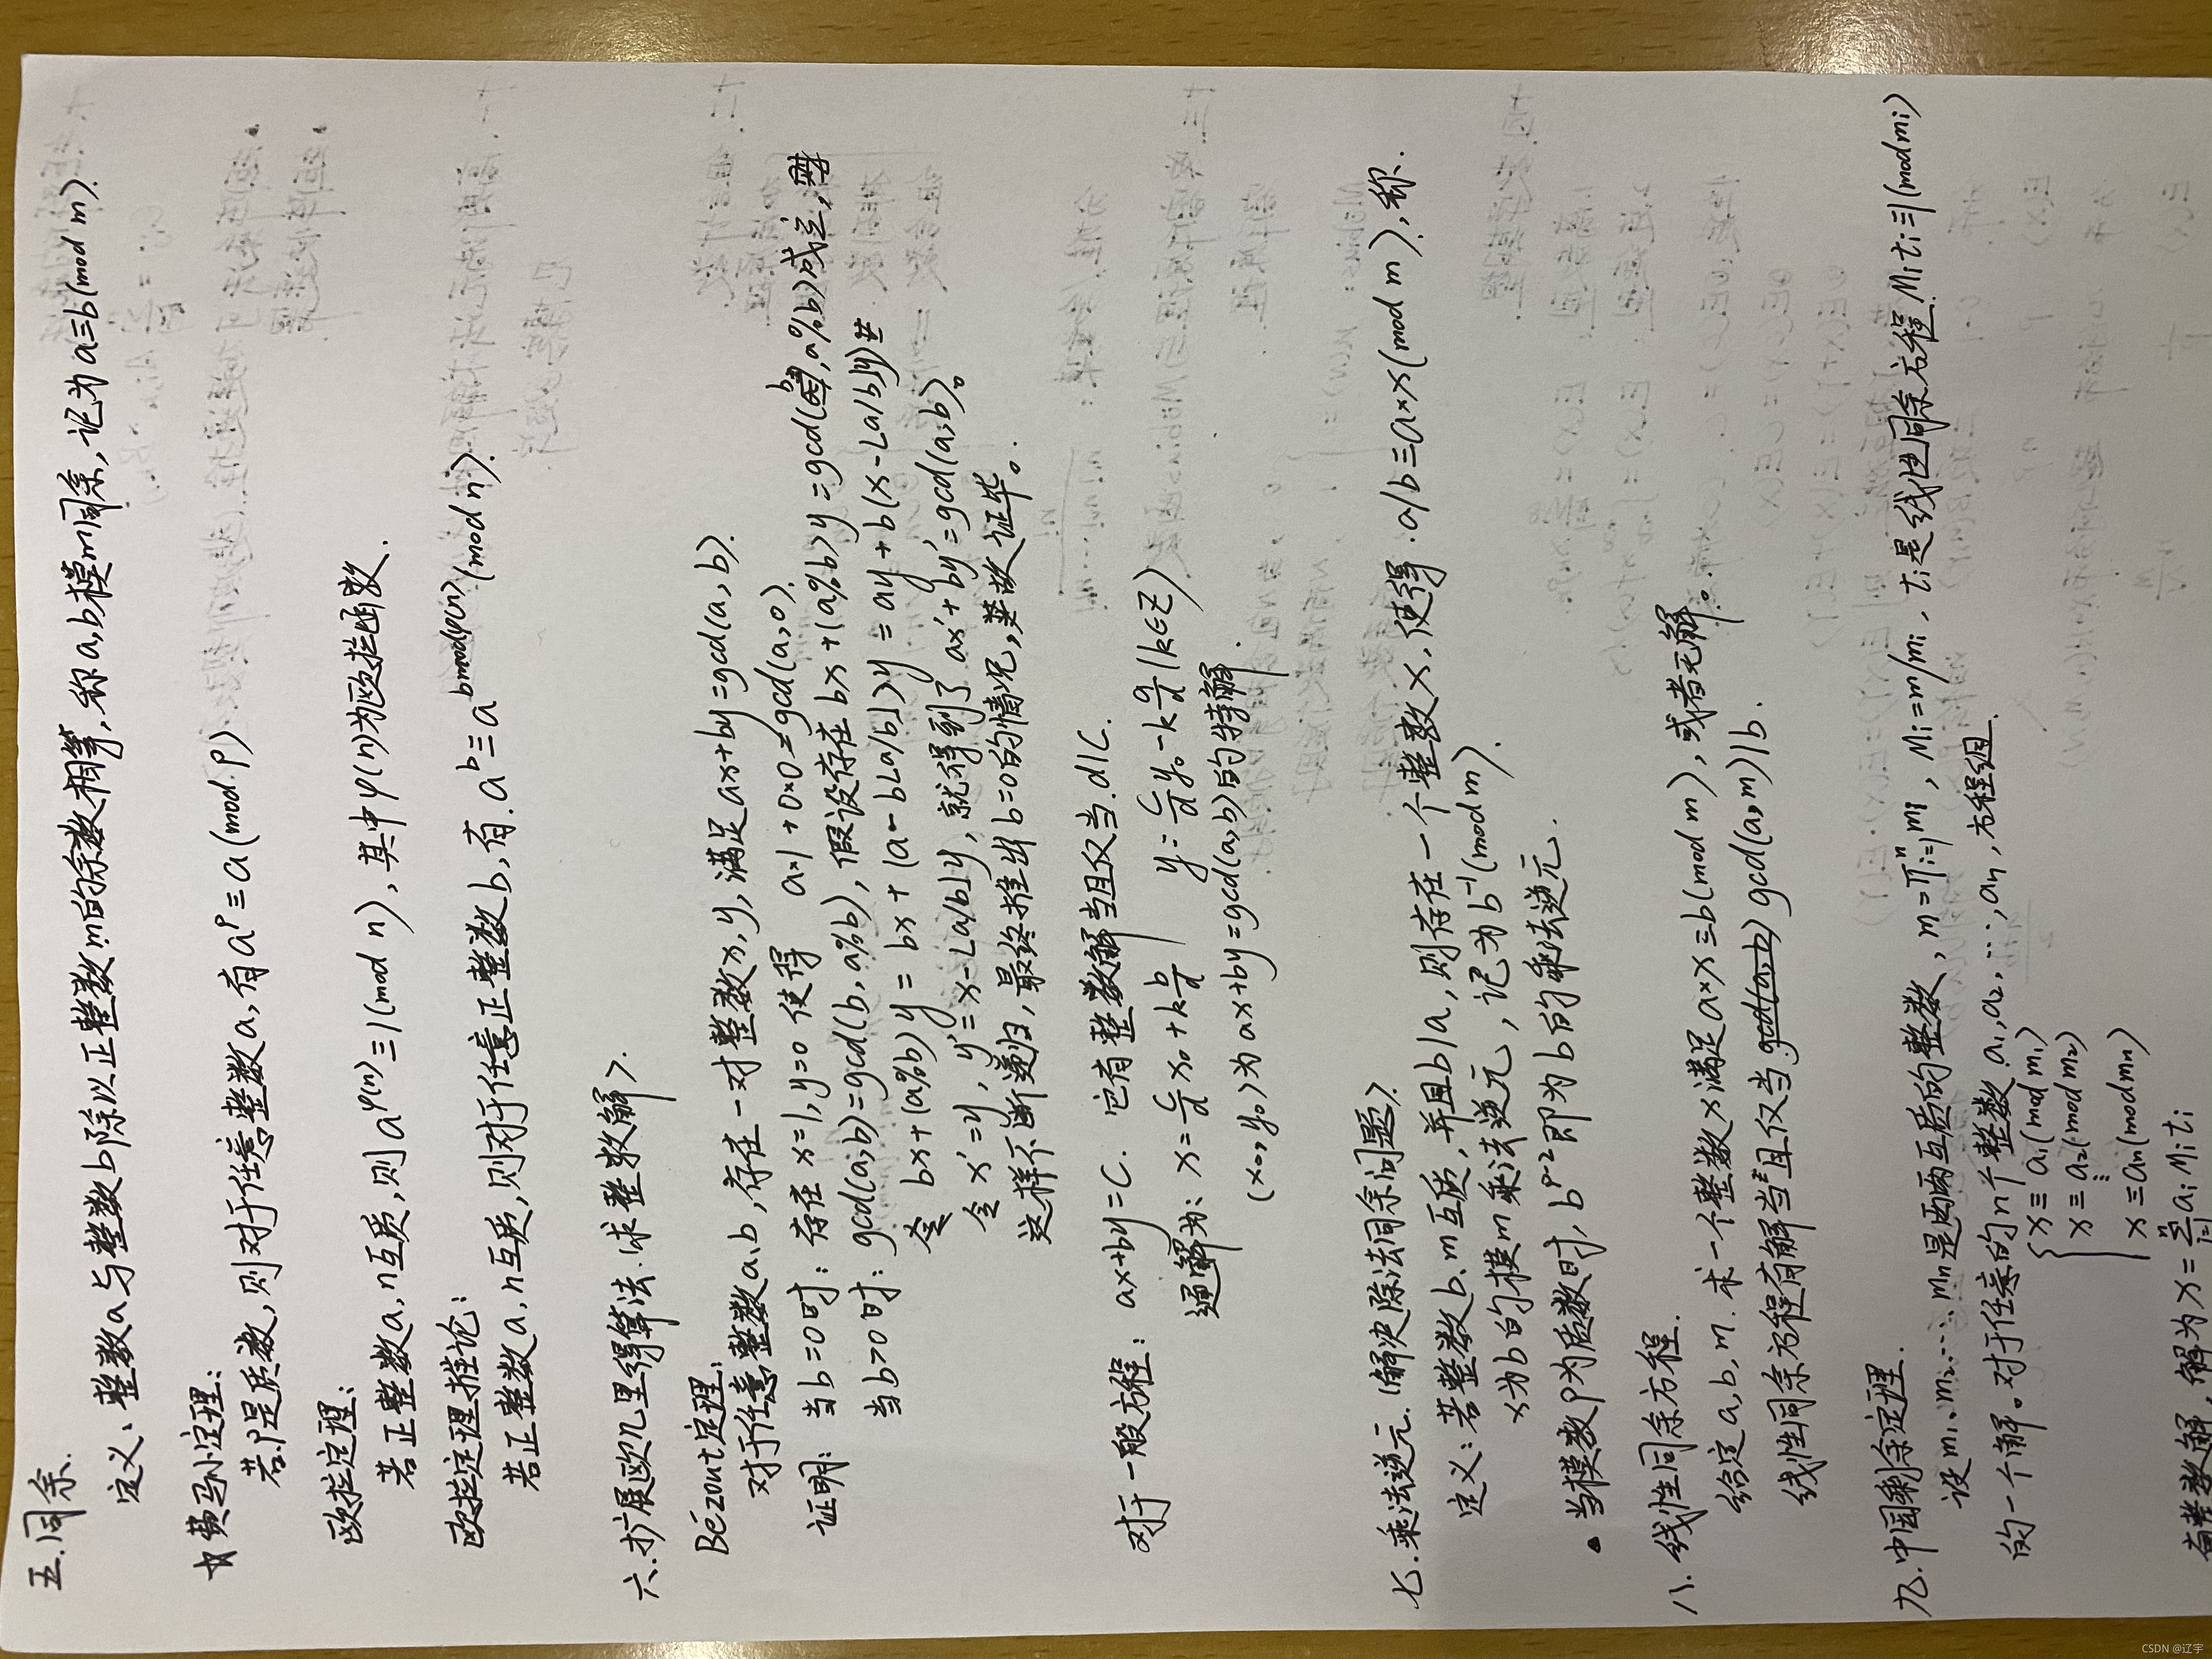 五.同余.
定义、整数a与整数b除以正整数m的余数相等,称a,b模m同余,记为a≡b(mod m).
☆费马小定理:
若p是质数,则对于任意整数a,有aᵖ≡a(mod p)
欧拉定理:
若正整数a,n互质,则a^φ(n)≡1(mod n),其中φ(n)为欧拉函数.
欧拉定理推论:
若正整数a,n互质,则对于任意正整数b,有.aᵇ≡a^bmodφ(n)(mod n).
六.扩展欧几里得算法.<求整数解>.
Bezout定理.
对于任意整数a、b,存在一对整数x,y,满足ax+by=gcd(a,b).
证明: 当b=0时:存在x=1,y=0使得 a×1+0×0=gcd(a,0).
当b>0时:gcd(a,b)=gcd(b,a%b),假设存在bx+(a%b)y=gcd(b,a%b)成立,
bx+(a%b)y=bx+(a-b⌊a/b⌋)y=ay+b(x-⌊a/b⌋y)
令x'=y,y'=x-⌊a/b⌋y,就得到了 ax'+by'=gcd(a,b)。
这样不断递归,最终推出b=0的情况,故证毕。
对于一般方程: ax+by=C. 它有整数解当且仅当.d|C.
通解为: x=c/d x₀+k b/d y=c/d y₀-k a/d (k∈Z)
(x₀,y₀)为ax+by=gcd(a,b)的特解.
七.乘法逆元.<解决除法同余问题>
定义:若整数b、m互质,并且b|a,则存在一个整数x,使得.a/b≡a×x(mod m),称.
x为b的模m乘法逆元,记为b⁻¹(mod m).
当模数p为质数时,bᵖ⁻²即为b的乘法逆元.
八.线性同余方程.
给定a,b,m.求一个整数x满足a×x≡b(mod m),或者无解。
线性同余方程有解当且仅当.gcd(a,m)|b.
九.中国剩余定理.
设m₁、m₂…mₙ是两两互质的整数,m=∏ⁿᵢ₌₁mᵢ,Mᵢ=m/mᵢ,tᵢ是线性同余方程Mᵢtᵢ≡1(mod mᵢ)
的一个解。对于任意的n个整数a₁,a₂,…,aₙ,方程组.
{x≡a₁(mod m₁)
x≡a₂(mod m₂)
⋮
x≡aₙ(mod mₙ)
有整数解,解为x=∑ⁿᵢ₌₁aᵢMᵢtᵢ
CSDN @辽宇